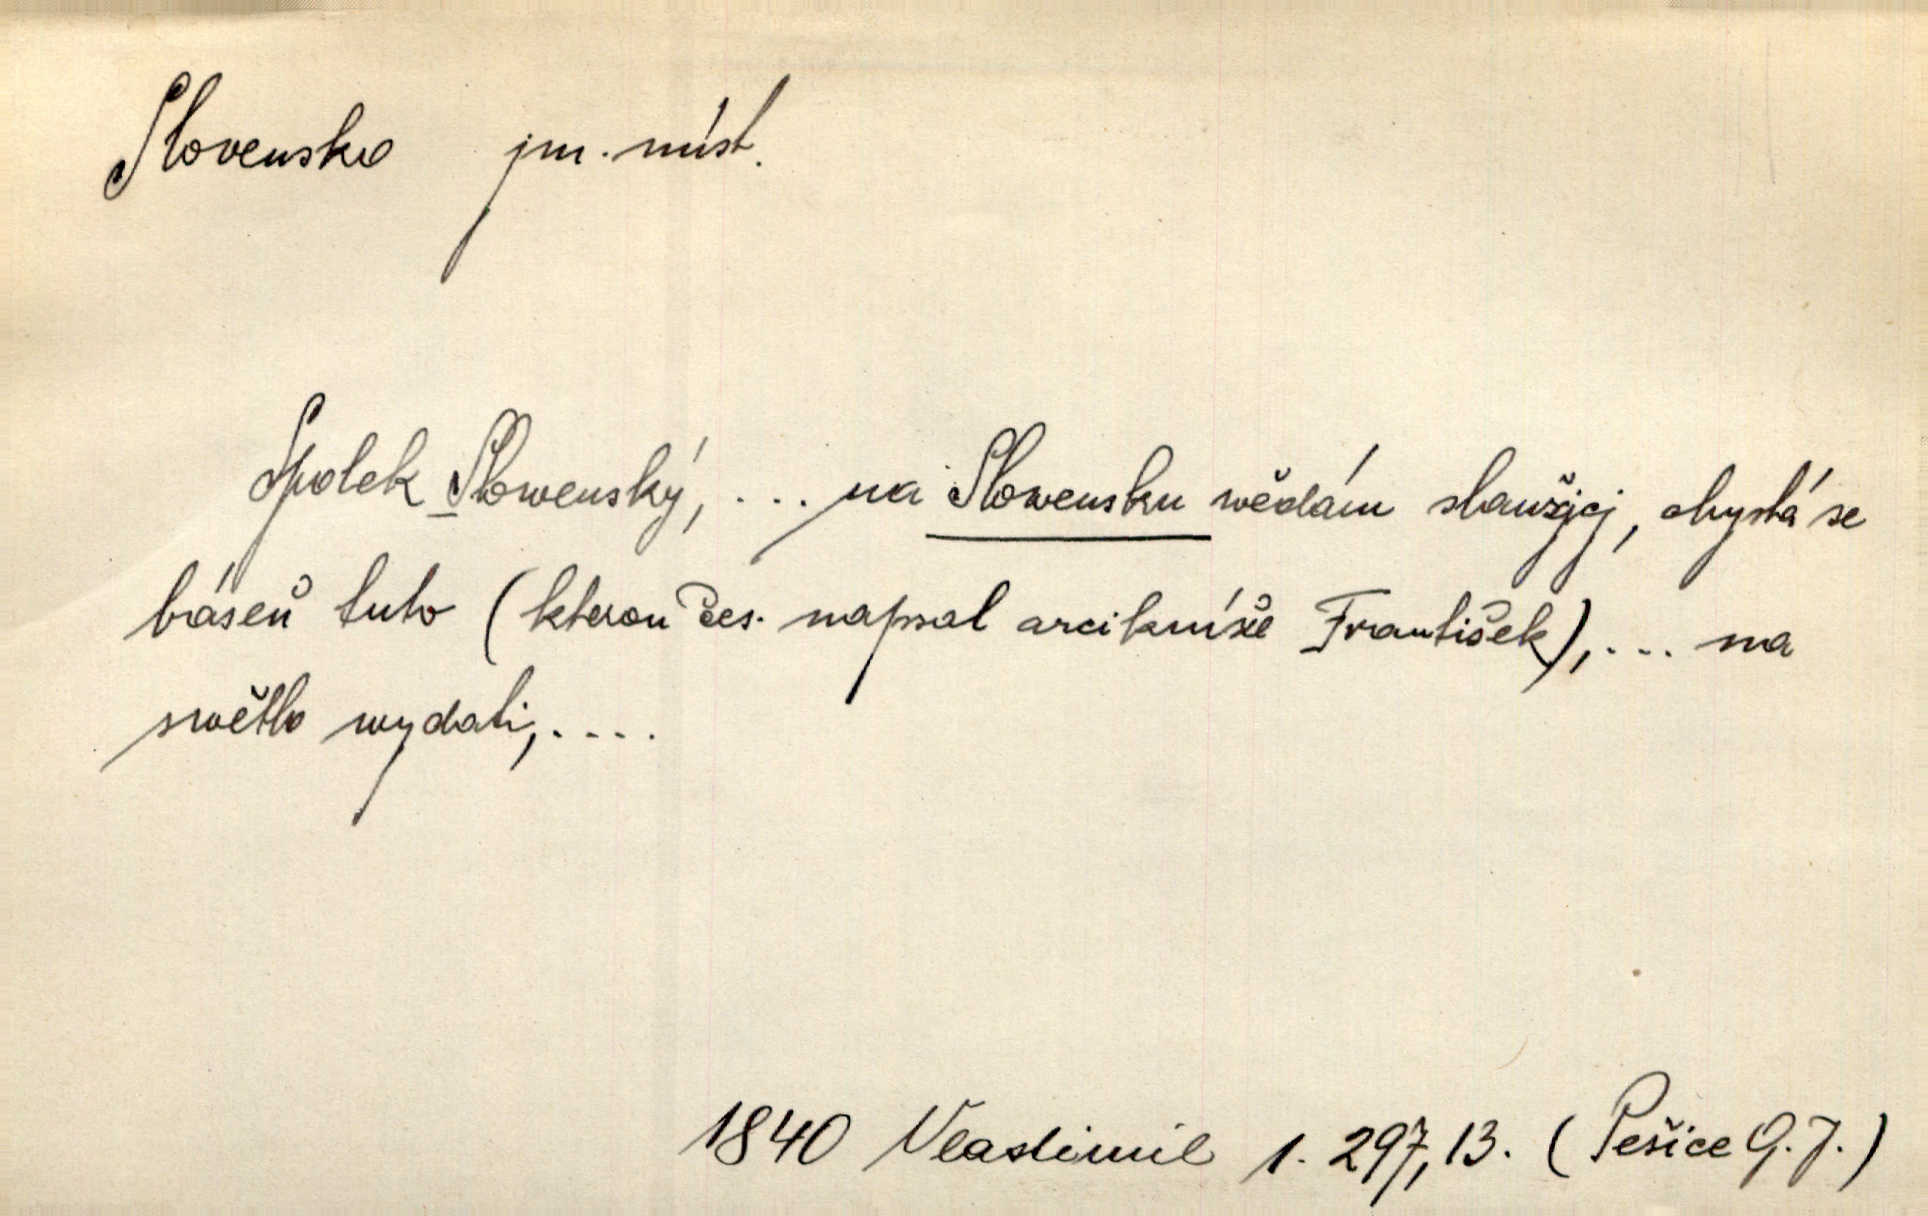 Slovensko jm. míst.
Spolek Slowenský, ... na Slowensku wědám slaužjcj, chystá se
báseň tuto (kterou čes. napsal arcikníže František), ... na
swětlo wydati, ....
1840 Vlastimil 1. 297, 13. (Pešice G. J.)